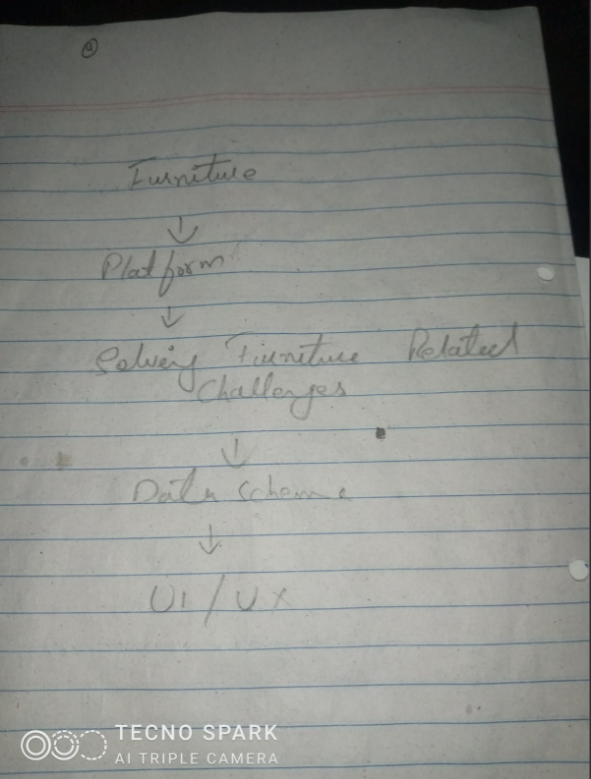 Furniture
↓
Platform
↓
Solving Furniture Related
Challenges
↓
Data Schema
↓
UI / UX
TECNO SPARK
AI TRIPLE CAMERA